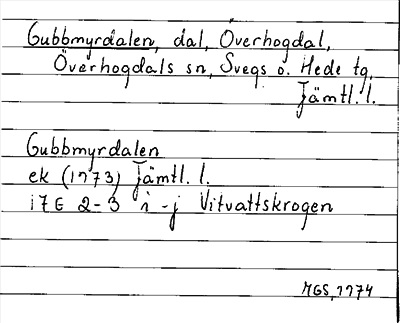 Gubbmyrdalen, dal, Överhogdal,
Överhogdals sn, Svegs o. Hede tg,
Jämtl. l.
Gubbmyrdalen
ek (1973) Jämtl. l.
17E 2-3 i-j Vitvattskrogen
MGS, 1974